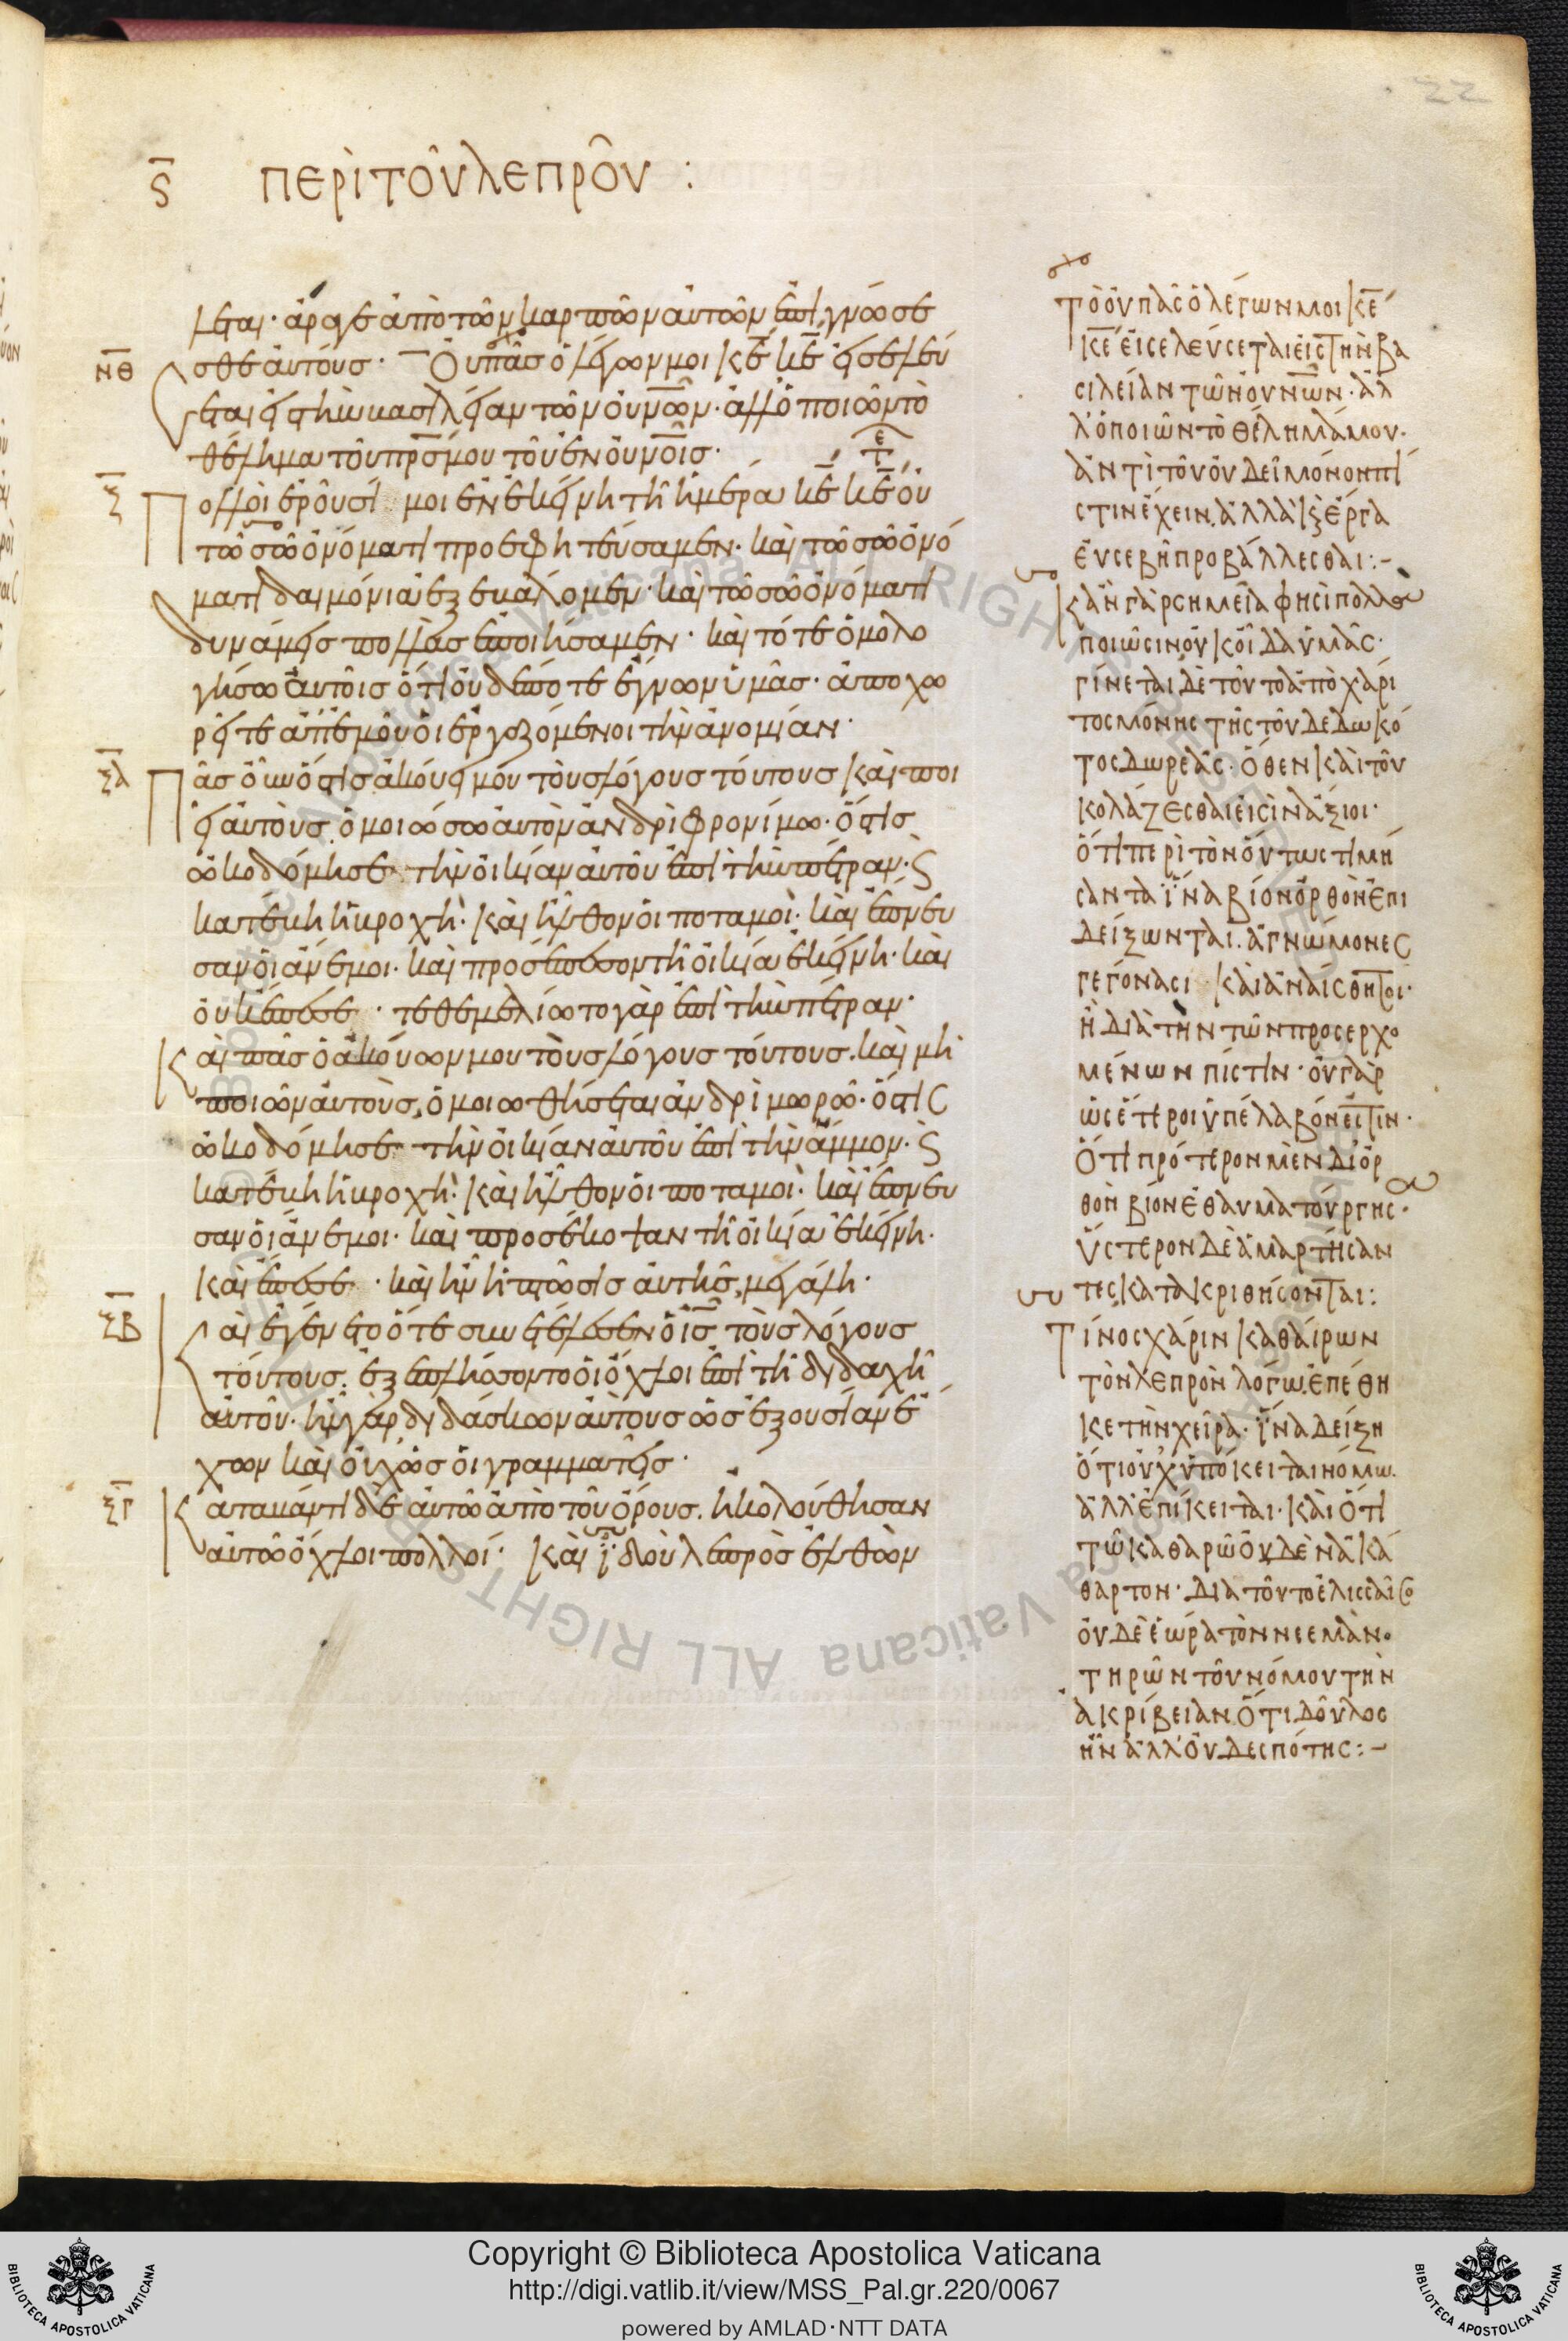 22
ς̅ περὶ τοῦ λεπροῦ :
λεται· ἄρα γε ἀπὸ τῶν καρπῶν αὐτῶν ἐπιγνώσε
ΝΘ σθε αὐτούς· Οὐ πᾶς ὁ λέγων μοι κε̅ κε̅ εἰσελεύ
εται εἰς τὴν βασιλείαν τῶν οὐνῶν· ἀλλ' ὁ ποιῶν τὸ
θέλημα τοῦ πρσ̅ μου τοῦ ἐν οὐνοῖς·
Ξ Πολλοὶ ἐροῦσί μοι ἐν ἐκείνη τῆ ἡμέρα κε̅ κε̅ οὐ
τῶ σῶ ὀνόματι προεφητεύσαμεν· καὶ τῶ σῶ ὀνό
ματι δαιμόνια ἐξεβάλομεν· καὶ τῶ σῶ ὀνόματι
δυνάμεις πολλὰς ἐποιήσαμεν· καὶ τότε ὁμολο
γήσω αὐτοῖς ὅτι οὐδέποτε ἔγνων ὑμᾶς· ἀποχω
ρεῖτε ἀπ' ἐμοῦ οἱ ἐργαζόμενοι τὴν ἀνομίαν·
ΞΑ Πᾶς οὖν ὅστις ἀκούει μου τοὺς λόγους τούτους καὶ ποι
εῖ αὐτοὺς, ὁμοιώσω αὐτὸν ἀνδρὶ φρονίμω· ὅστις
ὠκοδόμησε τὴν οἰκίαν αὐτοῦ ἐπὶ τὴν πέτραν· ϛ
κατέβη ἡ βροχὴ· καὶ ἦλθον οἱ ποταμοὶ· καὶ ἔπνευ
σαν οἱ ἄνεμοι· καὶ προσέπεσον τῆ οἰκία ἐκείνη· καὶ
οὐκ ἔπεσε· τεθεμελίωτο γὰρ ἐπὶ τὴν πέτραν·
Καὶ πᾶς ὁ ἀκούων μου τοὺς λόγους τούτους. καὶ μὴ
ποιῶν αὐτοὺς, ὁμοιωθήσεται ἀνδρὶ μωρῶ· ὅστις
ὠκοδόμησε τὴν οἰκίαν αὐτοῦ ἐπὶ τὴν ἄμμον· ϛ
κατέβη ἡ βροχὴ· καὶ ἦλθον οἱ ποταμοὶ· καὶ ἔπνευ
σαν οἱ ἄνεμοι· καὶ προσέκοψαν τῆ οἰκία ἐκείνη·
καὶ ἔπεσε· καὶ ἦν ἡ πτῶσις αὐτῆς μεγάλη·
ΞΒ Καὶ ἐγένετο ὅτε συνετέλεσεν ὁ ισ̅ τοὺς λόγους
τούτους. ἐξεπλήσσοντο οἱ ὄχλοι ἐπὶ τῆ διδαχῆ
αὐτοῦ· ἦν γὰρ διδάσκων αὐτοὺς ὡς ἐξουσίαν ἔ
χων καὶ οὐχ ὡς οἱ γραμματεῖς·
ΞΓ Καταβάντι δὲ αὐτῶ ἀπὸ τοῦ ὄρους. ἠκολούθησαν
αὐτῶ ὄχλοι πολλοί· Καὶ ἰδοὺ λεπρὸς ἐλθὼν
Τὸ οὐ πᾶς ὁ λέγων μοι κε̅
κε̅ εἰσελεύσεται εἰς τὴν βα
σιλείαν τῶν οὐνῶν· ἀλ
λ' ὁ ποιῶν τὸ θέλημά μου·
ἀντὶ τοῦ οὐ δεῖ μόνον πί
στιν ἔχειν, ἀλλὰ κ̀ ἔργα
εὐσεβῆ προβάλλεσθαι :-
Κἂν γὰρ σημεῖα φησὶ πολλὰ
ποιῶσιν οὐκ οἶδα ὑμᾶς·
γίνεται δὲ τοῦτο ἀπὸ χάρι
τος μόνης τῆς τοῦ δεδωκό
τος δωρεᾶς· ὅθεν καὶ τοῦ
κολάζεσθαι εἰσὶν ἄξιοι·
ὅτι περὶ τὸν οὕτως τιμή
σαντα ἵνα βίον ὀρθὸν ἐπι
δείξωνται. ἀγνώμονες
γεγόνασι καὶ ἀναίσθητοι·
ἢ διὰ τὴν τῶν προσερχο
μένων πίστιν· οὐ γὰρ
ὡς ἕτεροι ὑπέλαβόν ἐστιν·
Ὅτι πρότερον μὲν δι' ὀρ
θὸν βίον ἐθαυματούργησ·
ὕστερον δὲ ἁμαρτήσαν
τες κατακριθήσονται :
Τίνος χάριν καθαίρων
τὸν λεπρὸν λόγω, ἐπέθη
κε τὴν χεῖρα· ἵνα δείξη
ὅτι οὐχ ὑπόκειται νόμω.
ἀλλ' ἐπίκειται· καὶ ὅτι
τῶ καθαρῶ οὐδὲν ἀκά
θαρτον· διὰ τοῦτο ἐλισσαῖος
οὐδὲ ἑώρα τὸν νεεμάν·
τηρῶν τοῦ νόμου τὴν
ἀκρίβειαν. ὅτι δοῦλος
ἦν ἀλλ' οὐ δεσπότης :-
Copyright © Biblioteca Apostolica Vaticana
http://digi.vatlib.it/view/MSS_Pal.gr.220/0067
powered by AMLAD·NTT DATA